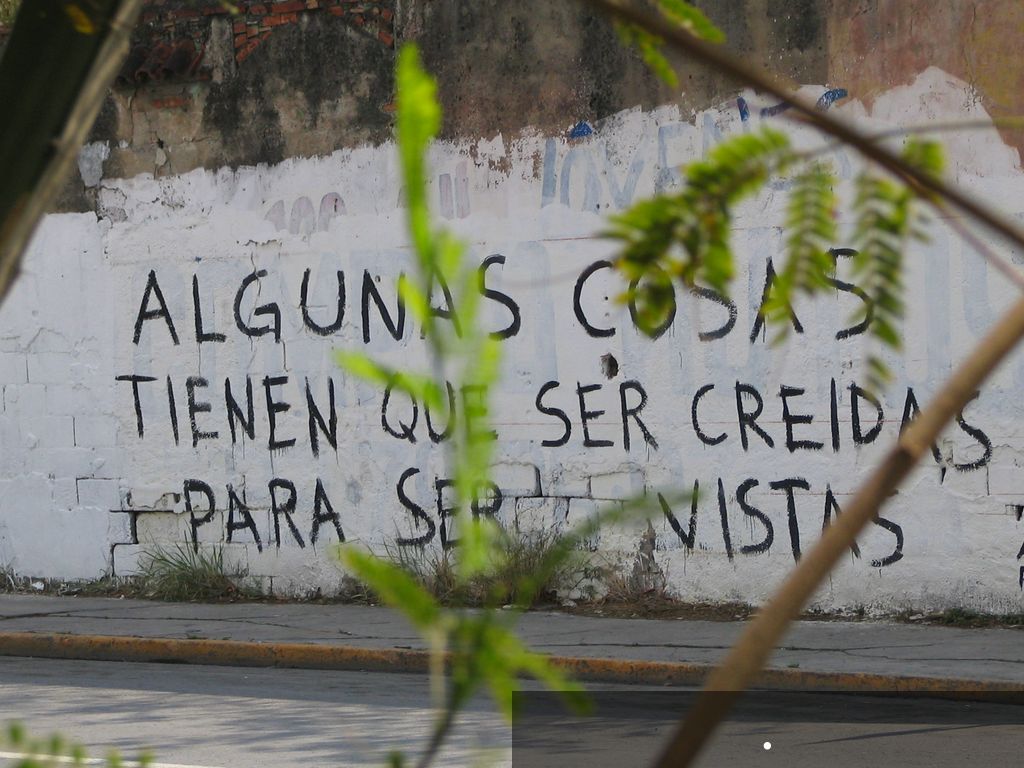 JOVENES
ALGUNAS COSAS
TIENEN QUE SER CREIDAS
PARA SER VISTAS